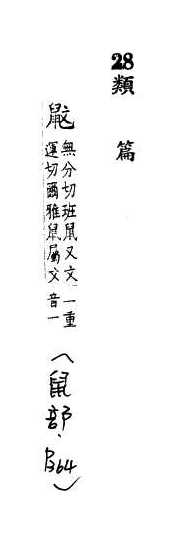 28類篇
鼤無分切班鼠又文
運切爾雅鼠屬文
一重
音一
（鼠部、P.364）